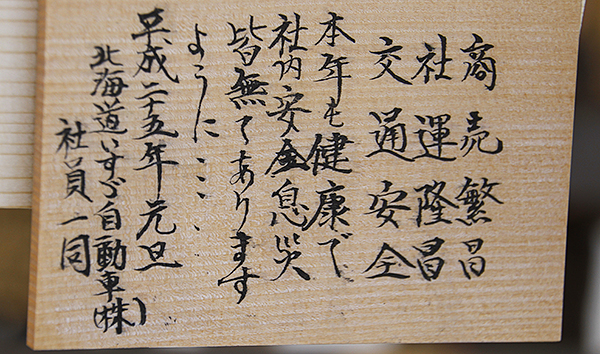 商売繁昌
社運隆昌
交通安全
本年も健康で
社内安全息災
皆無てあります
ように・・・
平成二十五年元旦
北海道いすゞ自動車(株)
社員一同